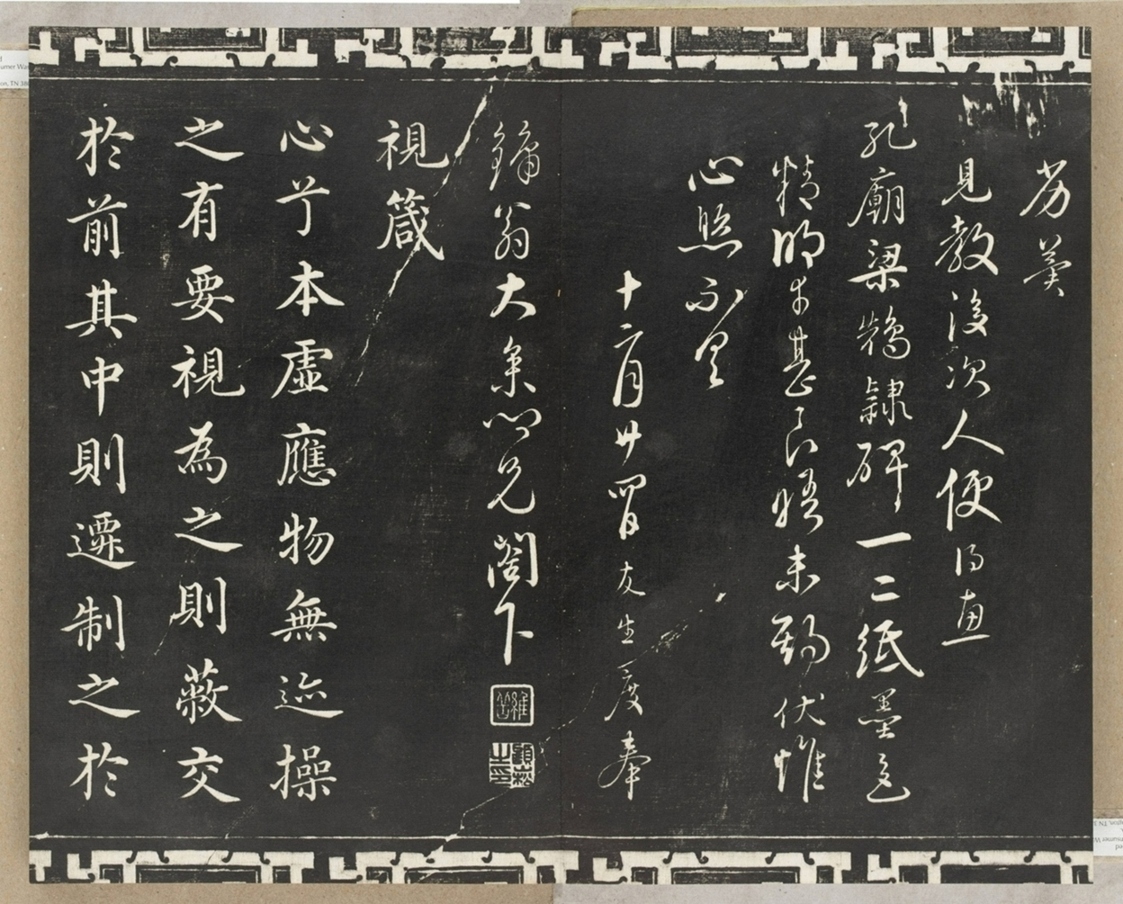 見教後次人便惠
孔廟梁鵠隸碑一二紙墨色
精明者甚良晤未期伏惟
心照不具
十二月廿四日友生度奉
鏞翁大兄閣下
視箴
心兮本虛應物無迹操
之有要視為之則蔽交
於前其中則遷制之於